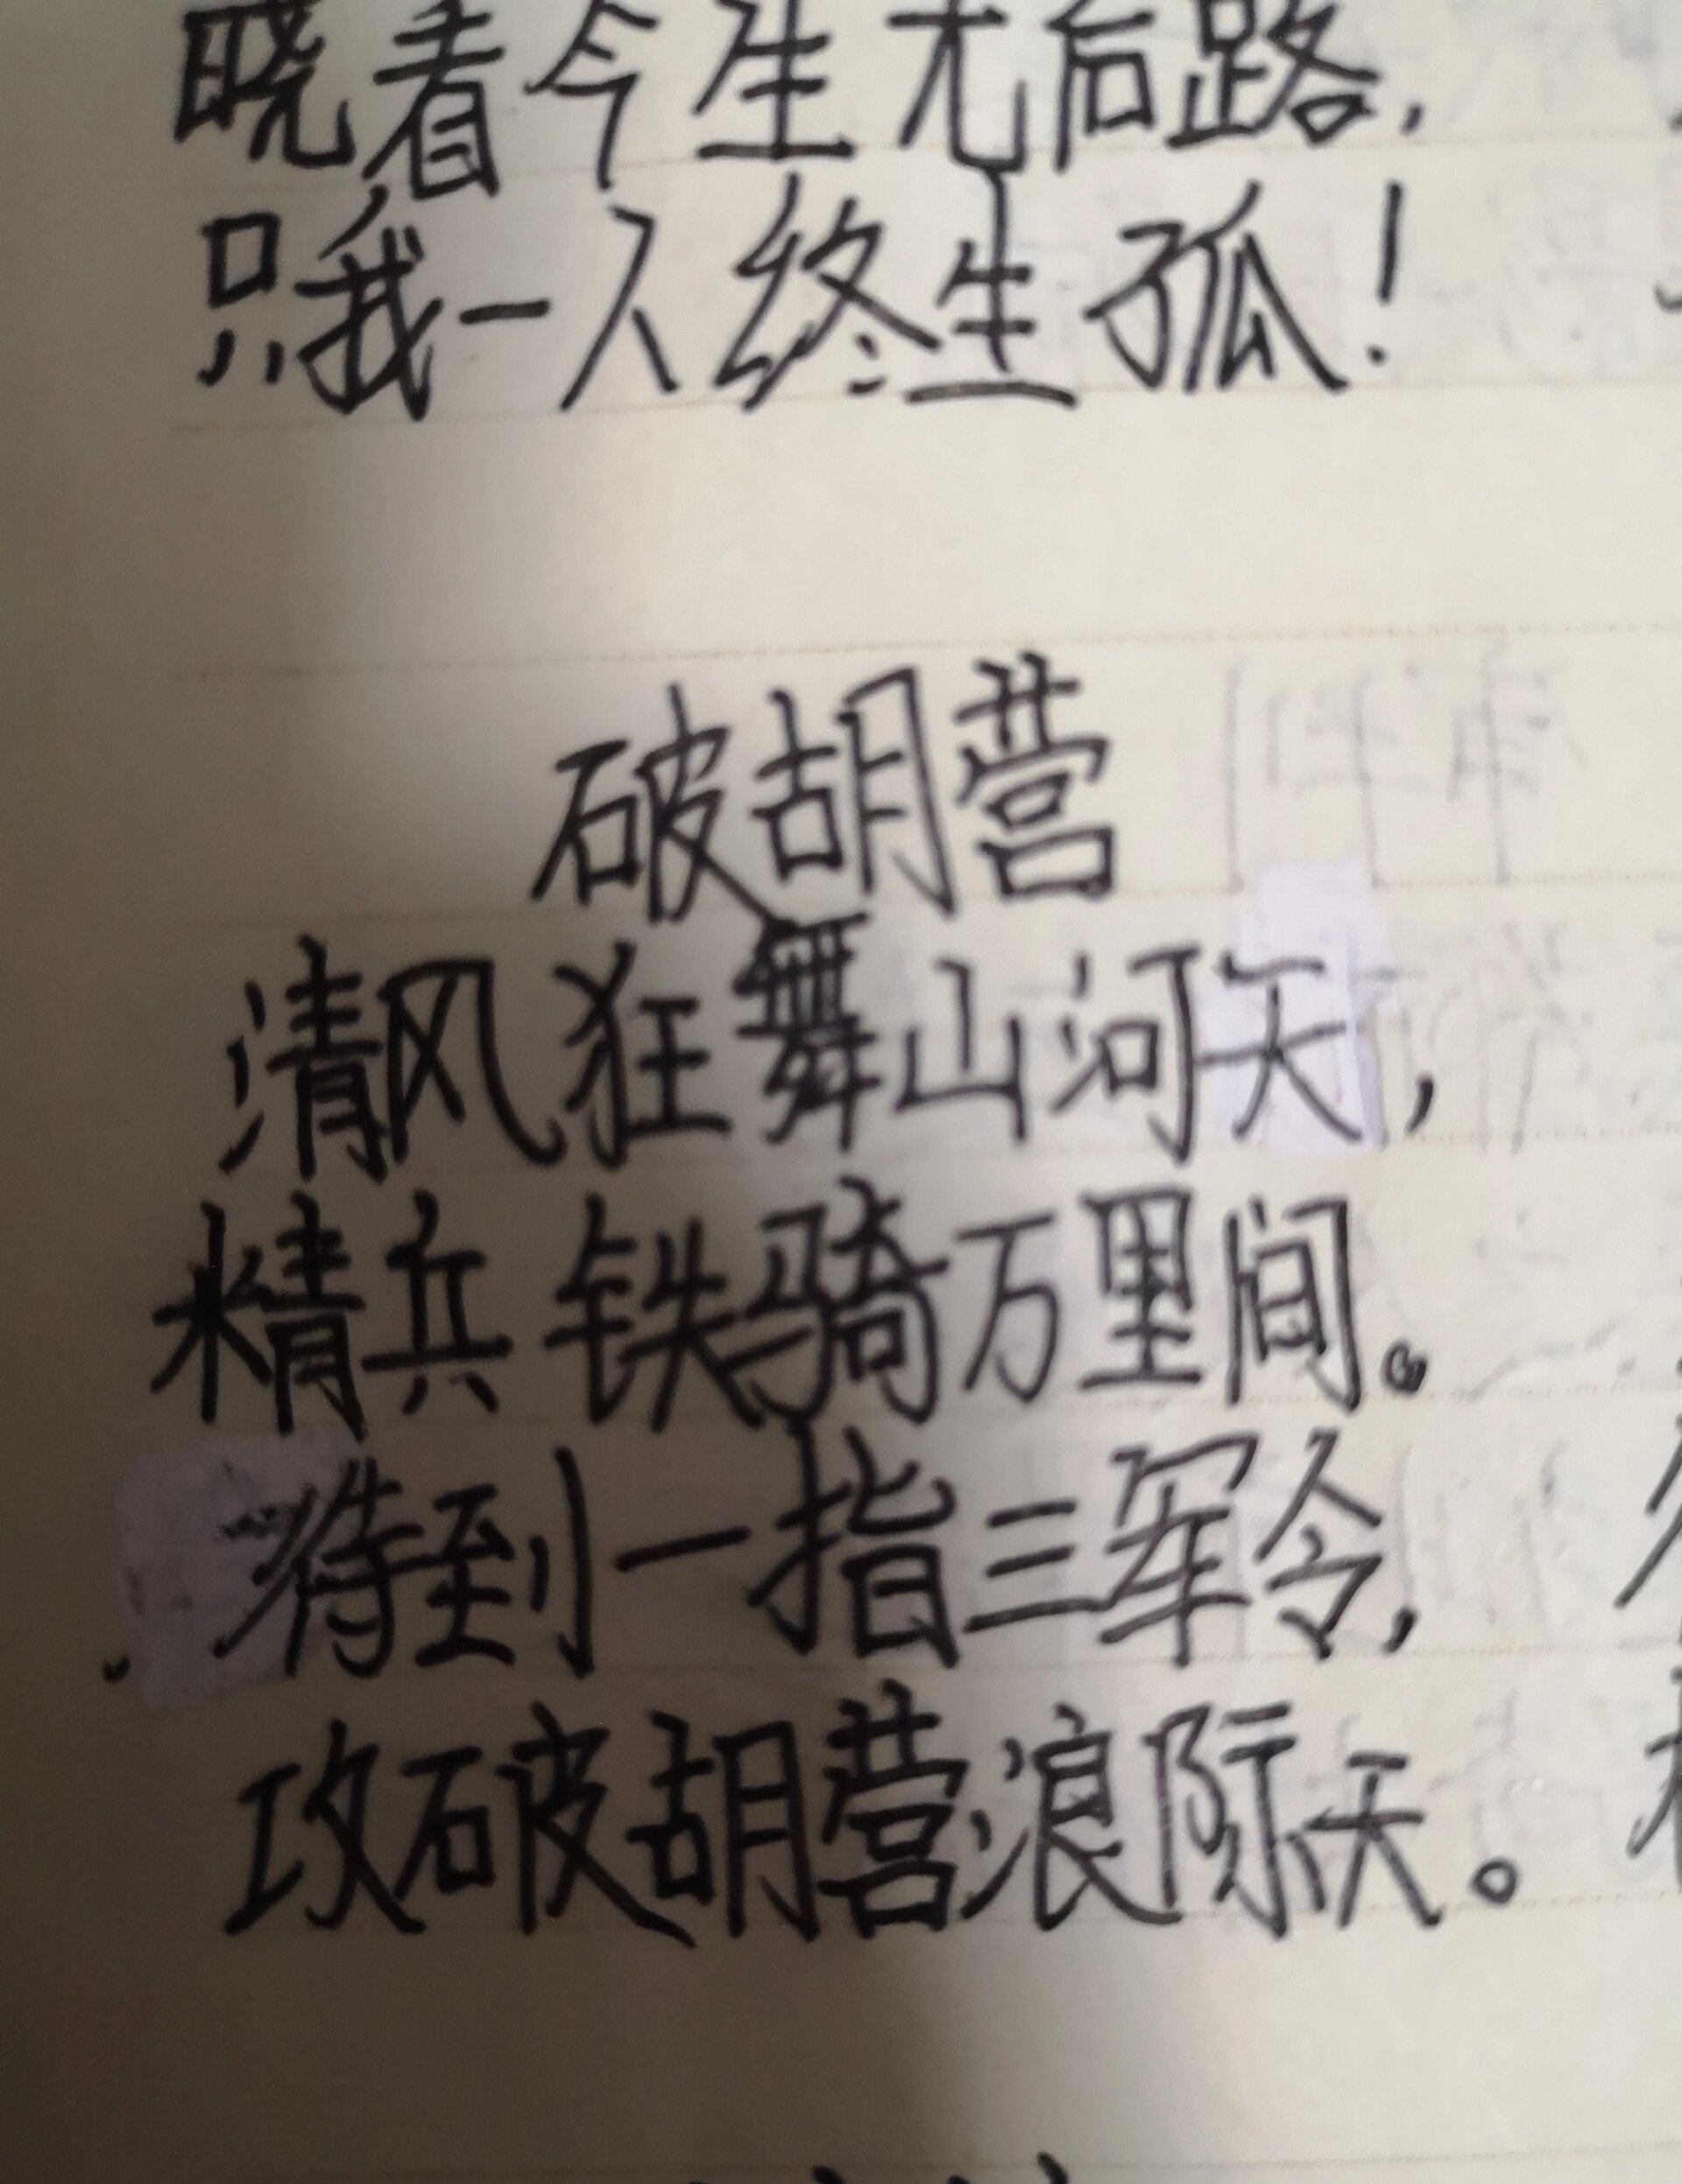 晓看今生无后路,
只我一人终生孤!
破胡营
清风狂舞山河天,
精兵铁骑万里间。
待到一指三军令,
攻破胡营浪际天。